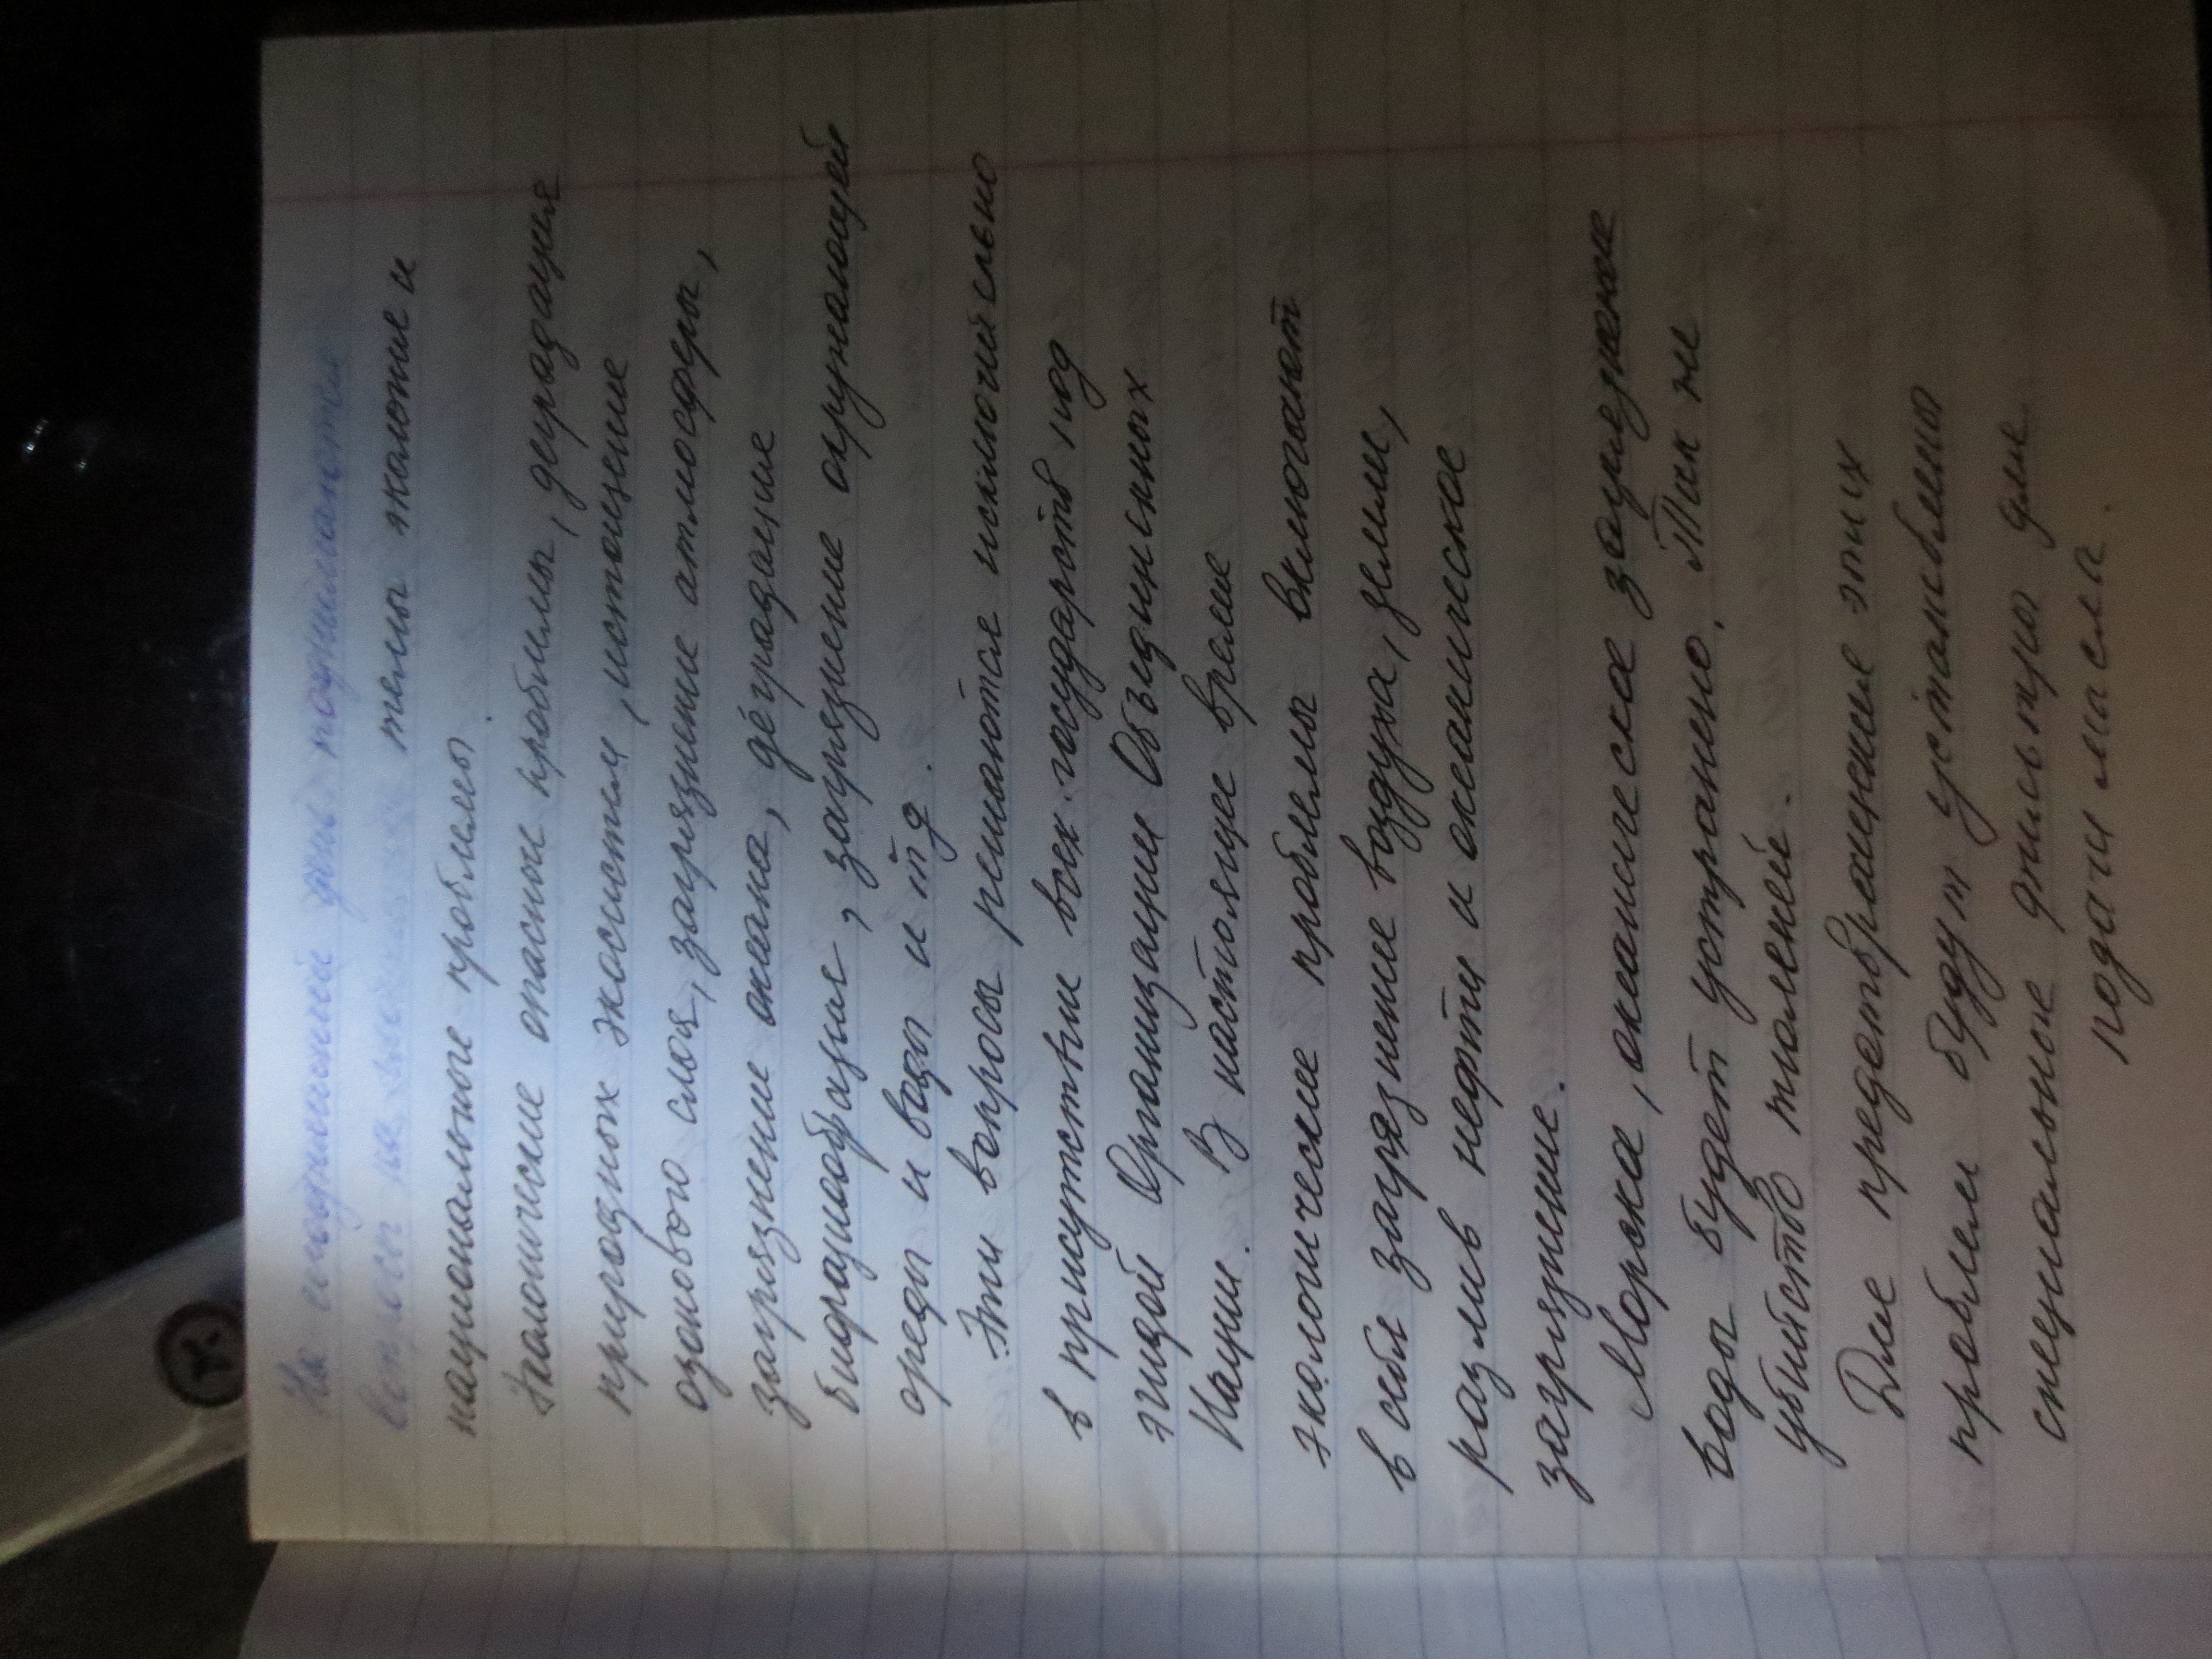 На сегодняшний день поднимаются
вопросы на темы экологие и
национальные проблемы.
Экологические опасные проблемы, деградация
природных экосистем, истощение
озонового слоя, загрязнение атмосферы,
загрязнение океана, деградацие
биоразнообразие, загрязнение окружающей
среды и воды и т д.
Эти вопросы решаются исключительно
в присутствии всех государств под
эгидой Организацие Объединенных
Нации. В настоящее время
экологические проблемы включают
в себя загрязнение воздуха, земли,
разлив нефти и океаническое
загрязнение.
Морска, океаническа загрязнение
воды будет устранено. Так же
убийство тюленей.
Для предотвращение этих
проблем будут установлены
специальные для
подачи масла.